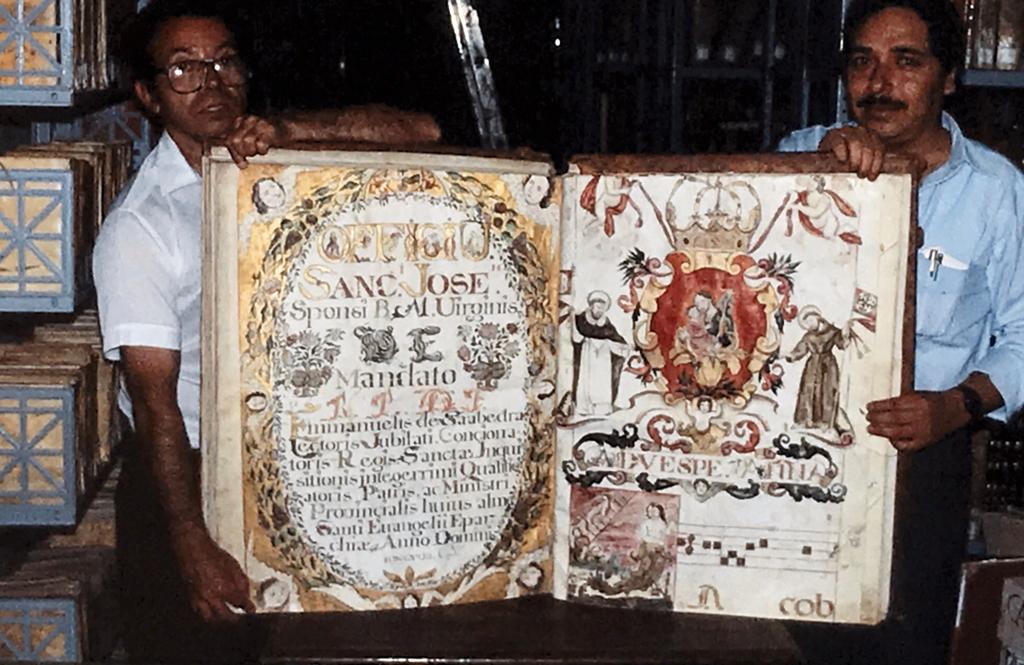 OFFICIU
SANC. JOSE
Sponsi B. M. Uirginis
DE
Mandato
Emmanuelis de Saabedra
Lectoris Jubilati, Conciona
toris Regis, Sanctæ Inqui
sitionis integerrimi Qualifi
catoris, Patris, ac Ministri
Provincialis huius almæ
Sancti Euangelii Epar
chiæ. Anno Domini
AD VESPE ANTIPHA
cob